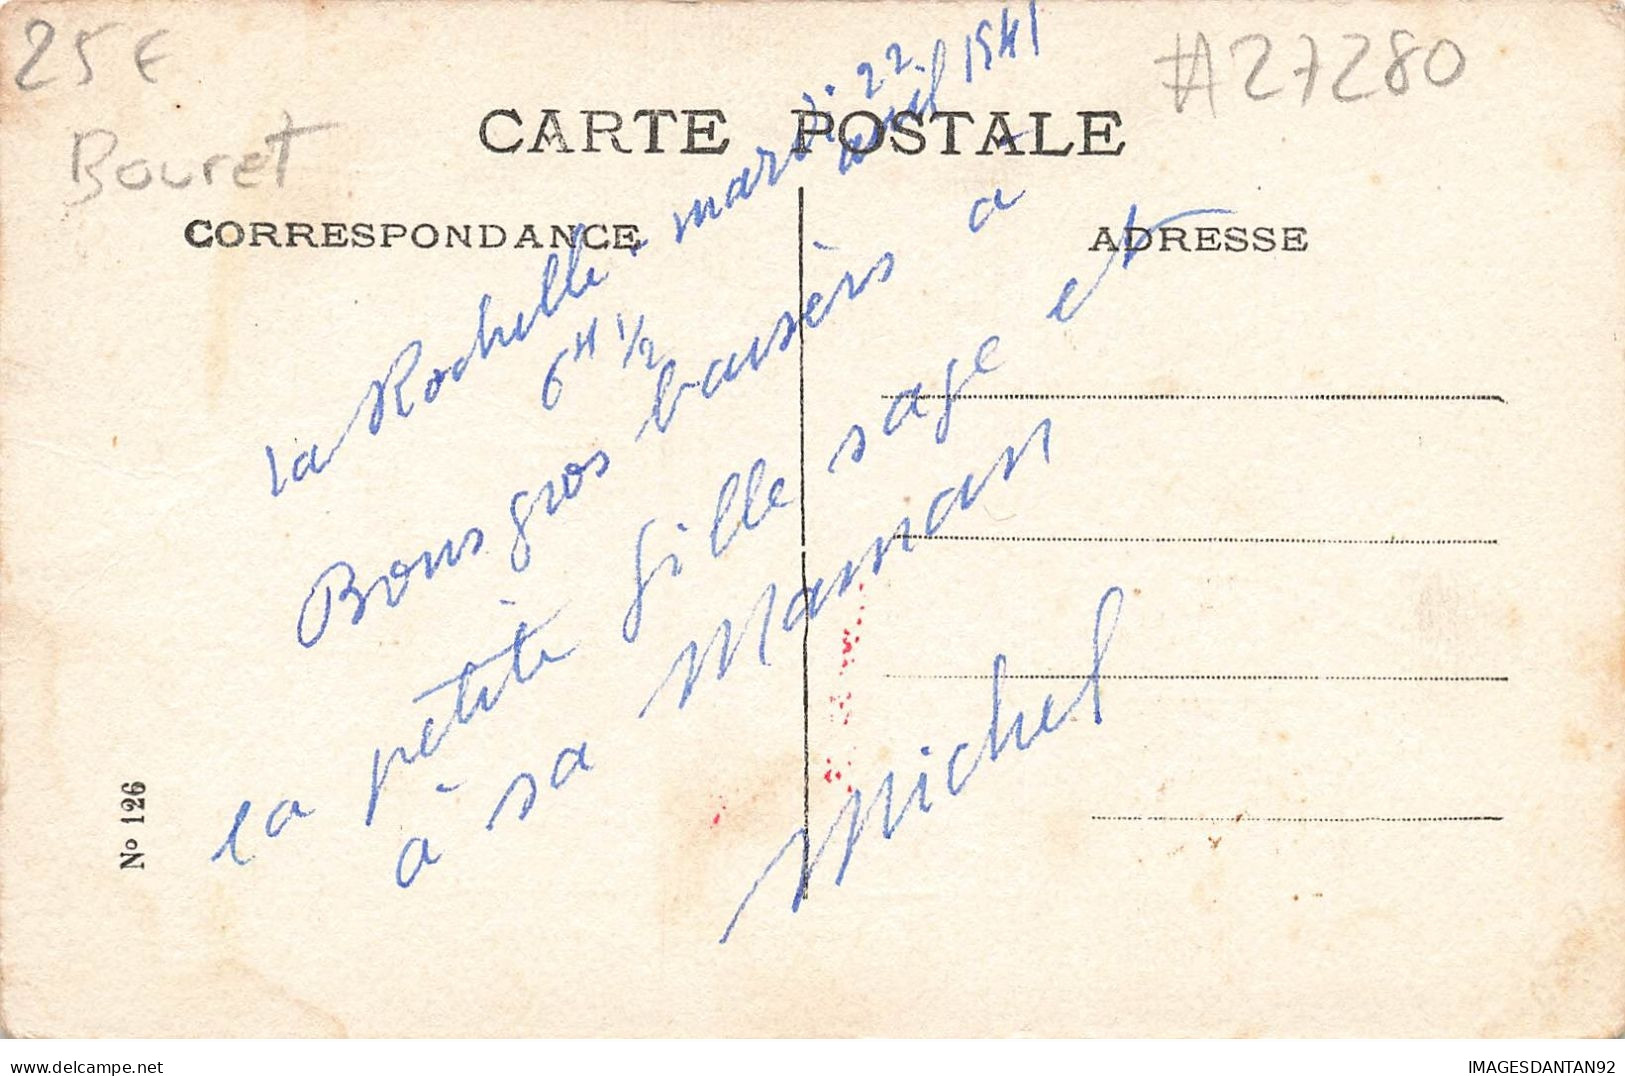 25 €
Bouret
#27280
CARTE POSTALE
CORRESPONDANCE
ADRESSE
la Rochelle - mardi 22
avril 1941
6H 1/2
Bons gros baisèrs a
la pètite fille sage et
à sa Maman
Michel
No 126
delcampe.net
IMAGESDANTAN92